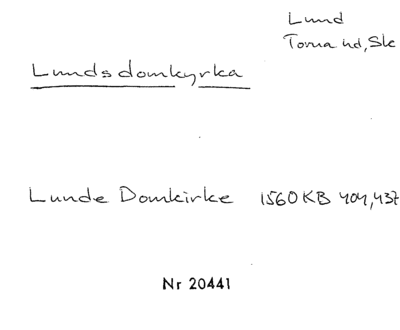 Lund
Torna hd, Sk
Lunds domkyrka
Lunde Domkirke 1560 KB 404,437
Nr 20441